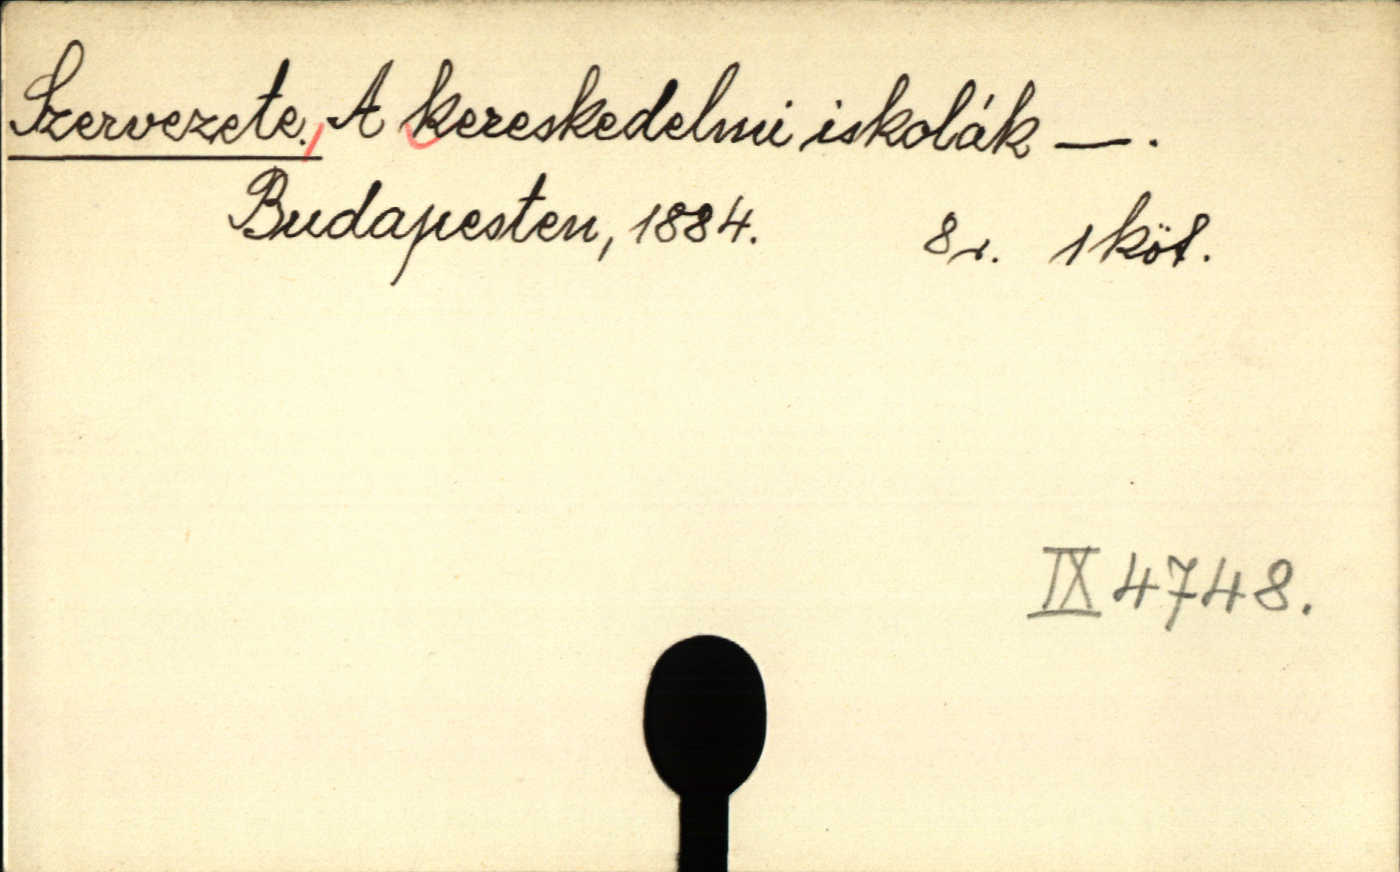 Szervezete, A kereskedelmi iskolák —.
Budapesten, 1884. 8r. 1 köt.
IX 4748.